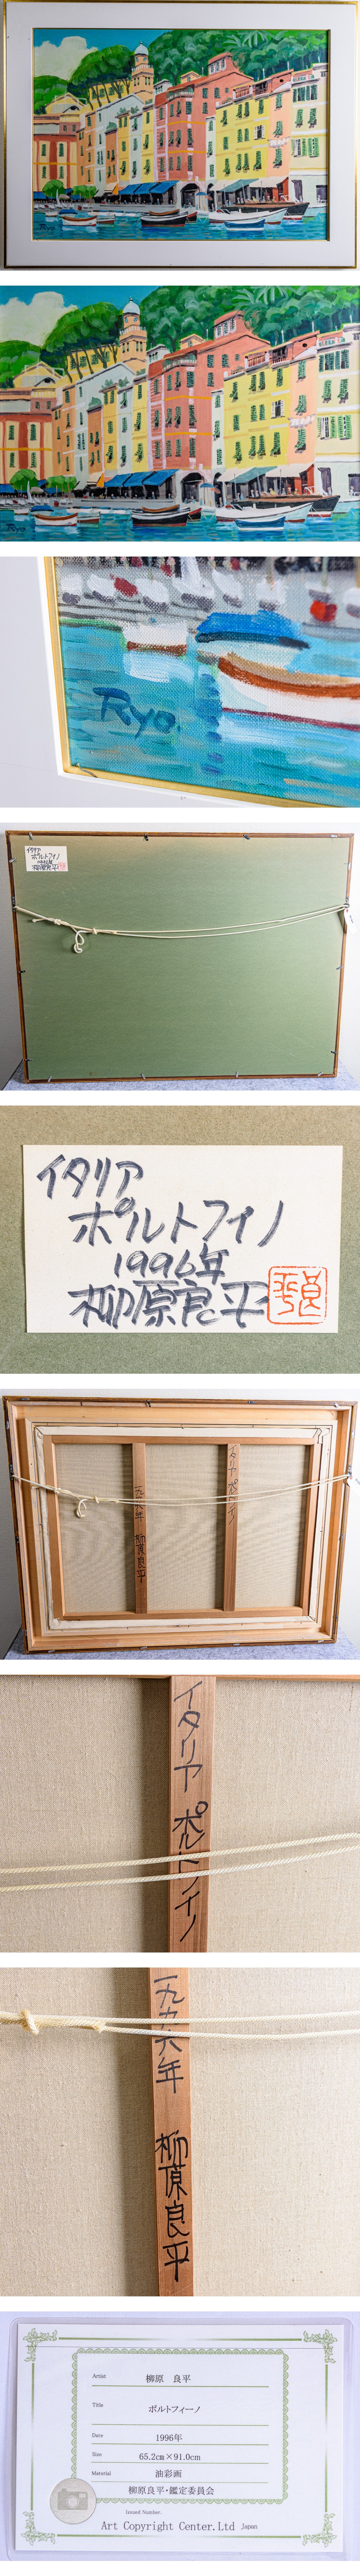 Ryo.
Ryo.
Ryo.
イタリア
ポルトフィノ
1996年
柳原良平
イタリア
ポルトフィノ
1996年
柳原良平
イタリア ポルトフィノ
一九九六年 柳原良平
イタリア ポルトフィノ
一九九六年 柳原良平
Artist 柳原 良平
Title ポルトフィーノ
Date 1996年
Size 65.2cm×91.0cm
Material 油彩画
柳原良平・鑑定委員会
Issued Number.
Art Copyright Center.Ltd Japan